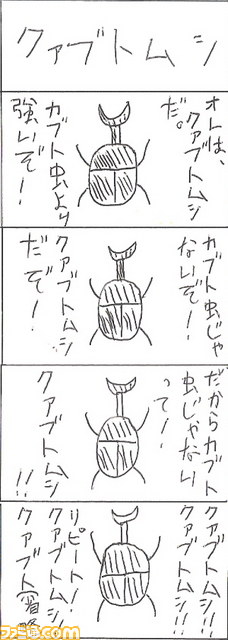 クァブトムシ
オレは、
クァブトムシ
だ。
カブト虫より
強いぞ!
カブト虫じゃ
ないぞ!
クァブトムシ
だぞ!
だからカブト
虫じゃない
って!
クァブトムシ!!
クァブトムシ!!
クァブトムシ!!
リピート!
クァブトムシ!
クァブト
ファミ通.com